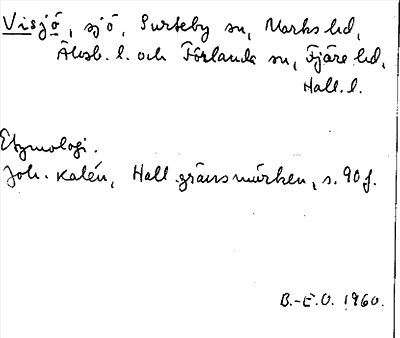 Visjö, sjö, Surteby sn, Marks hd,
Älvsb. l. och Förlanda sn, Fjäre hd,
Hall. l.
Etymologi.
Joh. Kalén, Hall. gränsmärken, s. 90 f.
B.-E.O. 1960.